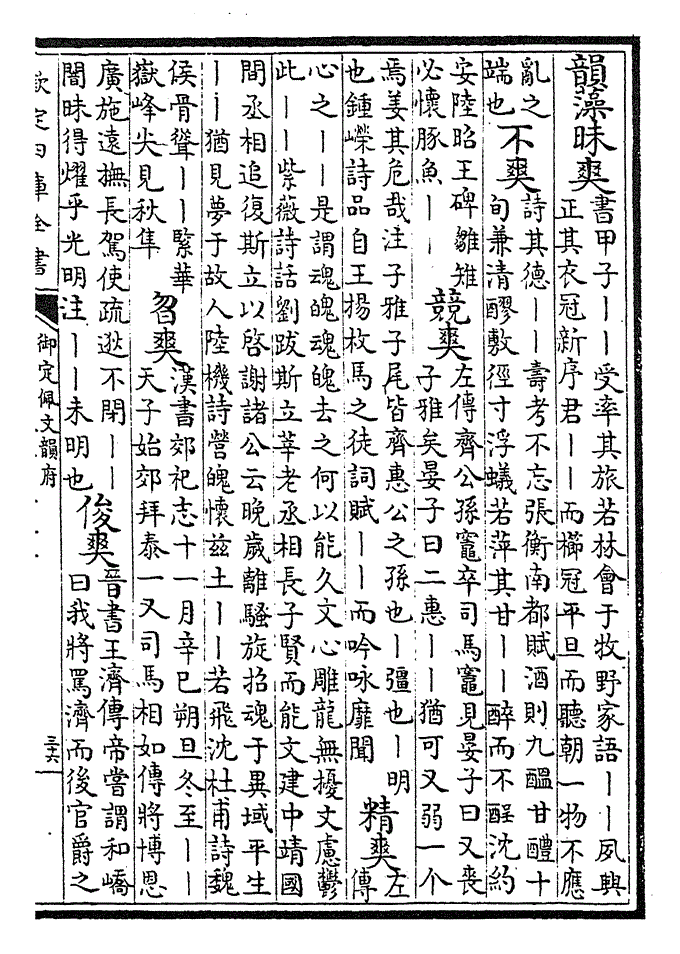 韻藻昧爽
書甲子丨丨受率其旅若林會于牧野家語丨丨夙興
正其衣冠新序君丨丨而櫛冠平旦而聽朝一物不應
亂之
端也
不爽
詩其德丨丨壽考不忘張衡南都賦酒則九醞甘醴十
旬兼清醪敷徑寸浮蟻若萍其甘丨丨醉而不酲沈約
安陸昭王碑雛雉
必懷豚魚丨丨
競爽
左傳齊公孫竈卒司馬竈見晏子曰又喪
子雅矣晏子曰二惠丨丨猶可又弱一个
焉姜其危哉注子雅子尾皆齊惠公之孫也丨彊也丨明
也鍾嶸詩品自王揚枚馬之徒詞賦丨丨而吟咏靡聞
精爽
左
傳
心之丨丨是謂魂魄魂魄去之何以能久文心雕龍無擾文慮鬱
此丨丨紫薇詩話劉跋斯立莘老丞相長子賢而能文建中靖國
間丞相追復斯立以啓謝諸公云晚歲離騷旋招魂于異域平生
丨丨猶見夢于故人陸機詩營魄懷兹土丨丨若飛沈杜甫詩魏
侯骨聳丨丨緊華
嶽峰尖見秋隼
曶爽
漢書郊祀志十一月辛巳朔旦冬至丨丨
天子始郊拜泰一又司馬相如傳將博恩
廣施遠撫長駕使疏逖不閉丨丨
闇昧得燿乎光明注丨丨未明也
俊爽
晉書王濟傳帝嘗謂和嶠
曰我將罵濟而後官爵之
欽定四庫全書
御定佩文韻府
三六